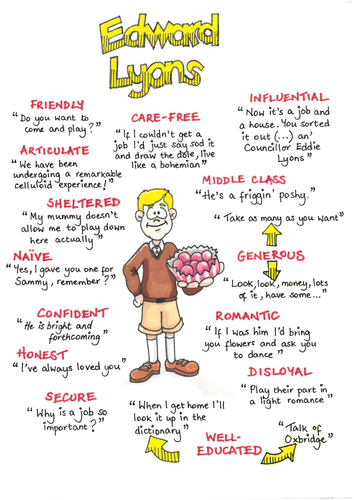 Edward
Lyons
FRIENDLY
"Do you want to
come and play?"
ARTICULATE
"We have been
undergoing a remarkable
celluloid experience!"
SHELTERED
"My mummy doesn't
allow me to play down
here actually"
NAÏVE
"Yes, I gave you one for
Sammy, remember?"
CONFIDENT
"He is bright and
forthcoming"
HONEST
"I've always loved you"
SECURE
"Why is a job so
important?"
CARE-FREE
"If I couldn't get a
job I'd just say sod it
and draw the dole, live
like a bohemian"
INFLUENTIAL
"Now it's a job and
a house. You sorted
it out (...) an'
Councillor Eddie
Lyons"
MIDDLE CLASS
"He's a friggin' poshy."
"Take as many as you want"
GENEROUS
"Look, look, money, lots
of it, have some..."
ROMANTIC
"If I was him I'd bring
you flowers and ask you
to dance"
DISLOYAL
"Play their part in
a light romance"
"When I get home I'll
look it up in the
dictionary"
WELL-
EDUCATED
"Talk of
Oxbridge"